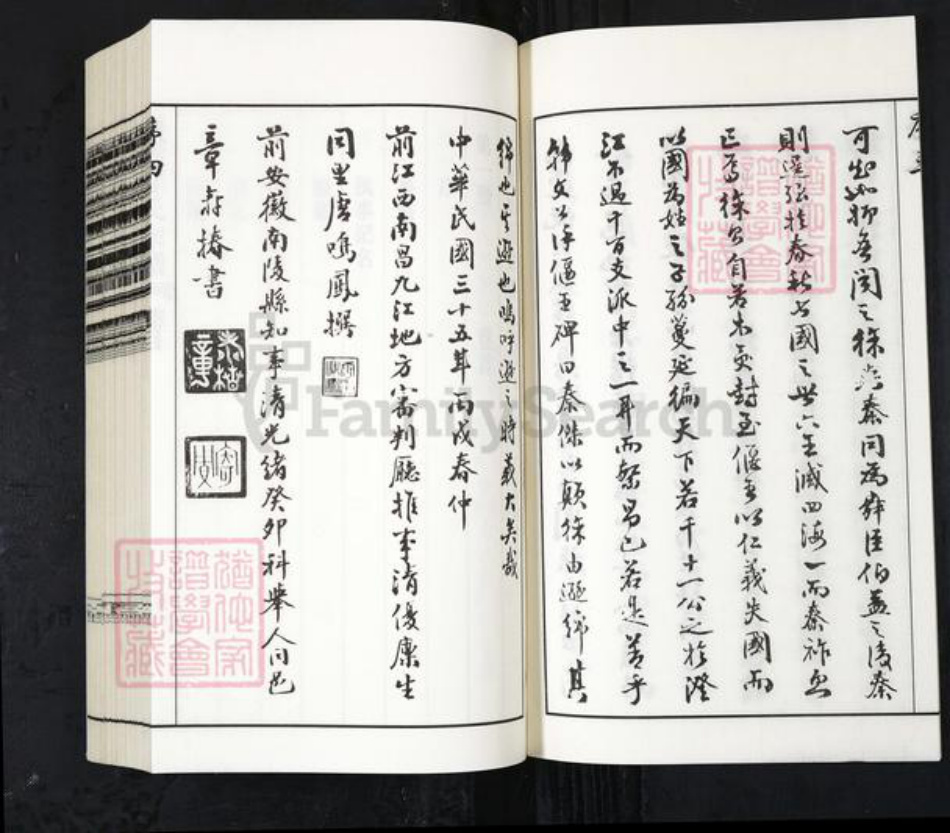 可知抑吾聞之徐與秦同為舜臣伯益之後秦
則逞強於春秋戰國之世六王滅四海一而秦祚亡
亡焉徐公自若木受封至偃王以仁義失國而
以國為姓之子孫蔓延徧天下若干十一公之於澄
江不過千百支派中之一耳而繁昌已若是善乎
韓文公序偃王碑曰秦傑以顛徐由遜綿其
綿也其遜也嗚呼遜之時義大矣哉
中華民國三十五年丙戌春仲
前江西南昌九江地方審判廳推事清優廩生
同里唐鳴鳳撰
前安徽南陵縣知事清光緒癸卯科舉人同邑
章壽椿書
譜學會
收藏
FamilySearch